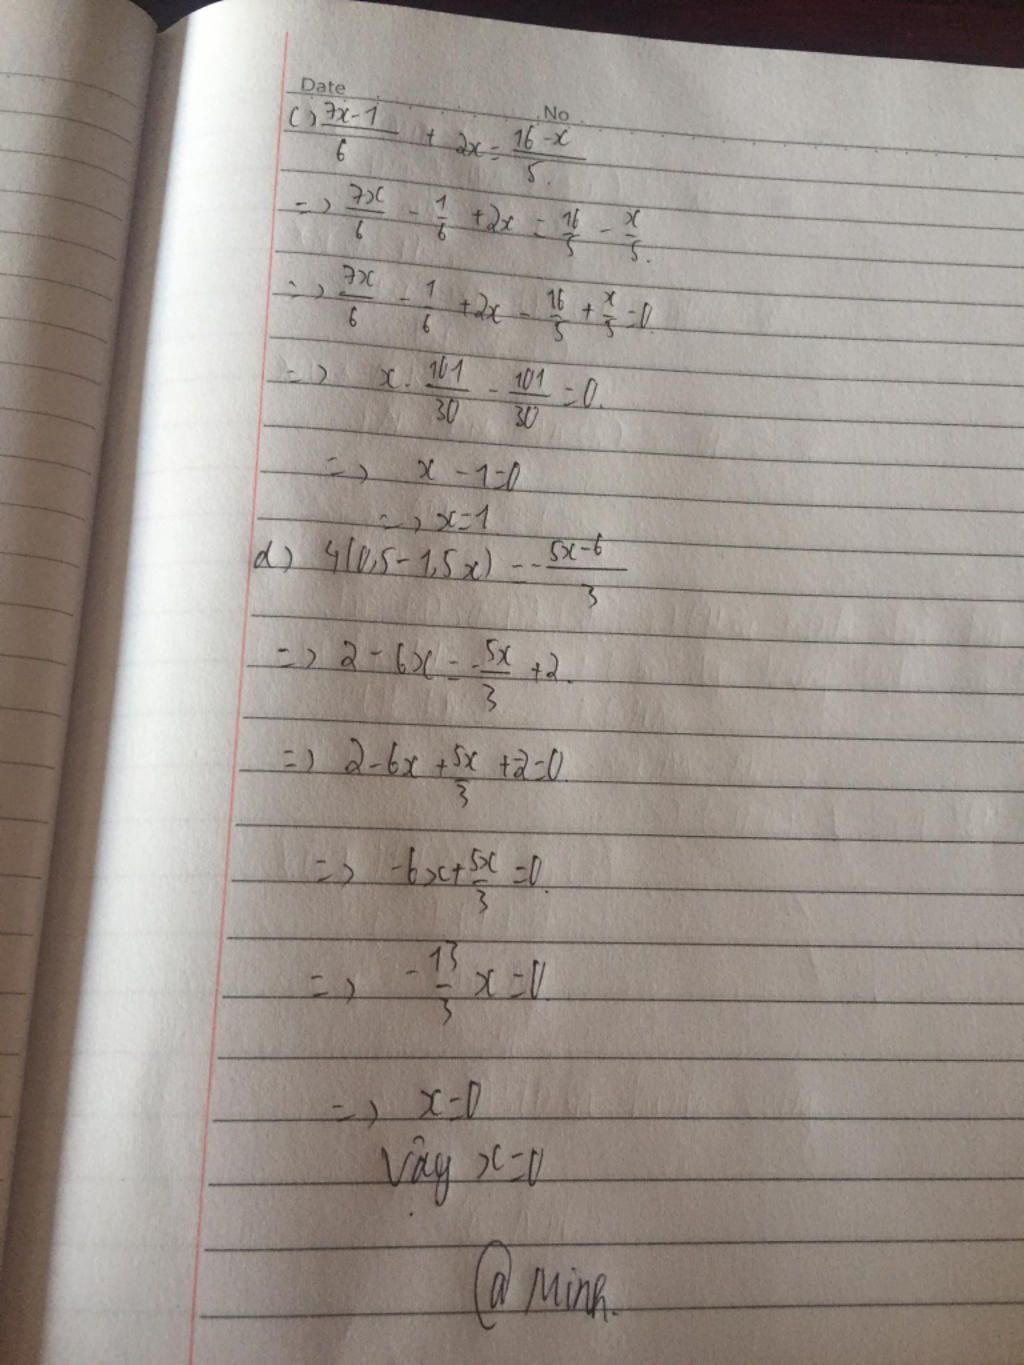 Date
No
c) (7x-1)/6 + 2x = (16-x)/5.
=> 7x/6 - 1/6 + 2x = 16/5 - x/5.
=> 7x/6 - 1/6 + 2x - 16/5 + x/5 = 0
=> x. 101/30 - 101/30 = 0.
=> x - 1 = 0
=> x = 1
d) 4(0,5 - 1,5x) = - (5x-6)/3
=> 2 - 6x = - 5x/3 + 2.
=> 2 - 6x + 5x/3 + -2 = 0.
=> -6x + 5x/3 = 0.
=> - 13/3 x = 0
=> x = 0
Vậy x = 0
@ Minh.